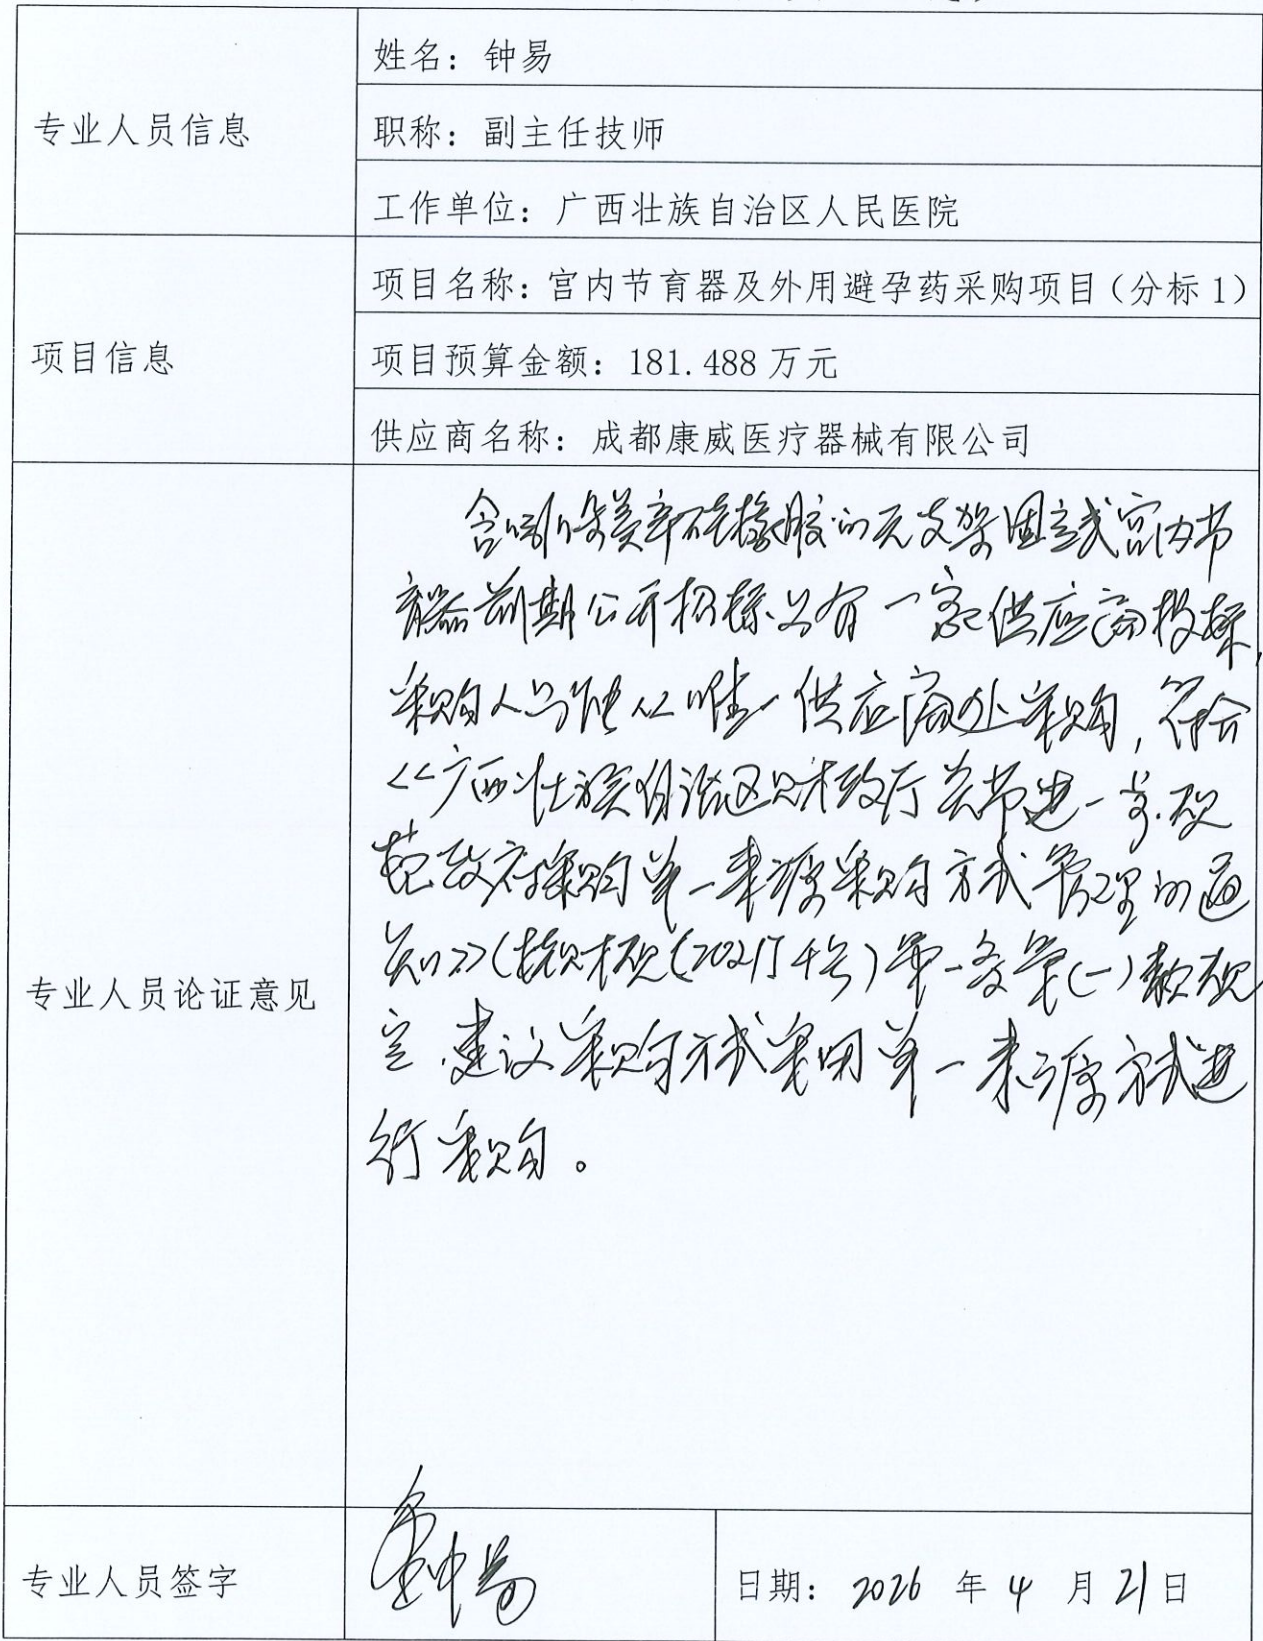 专业人员信息
姓名：钟易
职称：副主任技师
工作单位：广西壮族自治区人民医院
项目信息
项目名称：宫内节育器及外用避孕药采购项目（分标1）
项目预算金额：181.488万元
供应商名称：成都康威医疗器械有限公司
专业人员论证意见
含吲哚美辛硅橡胶的无支架固定式宫内节
育器前期公开招标只有一家供应商投标，
采购人只能从唯一供应商处采购，符合
《广西壮族自治区财政厅关于进一步规
范政府采购单一来源采购方式管理的通
知》（桂财规〔2021〕4号）第一条第（一）款规
定，建议采购方式采用单一来源方式进
行采购。
专业人员签字
钟易
日期：2026年4月21日